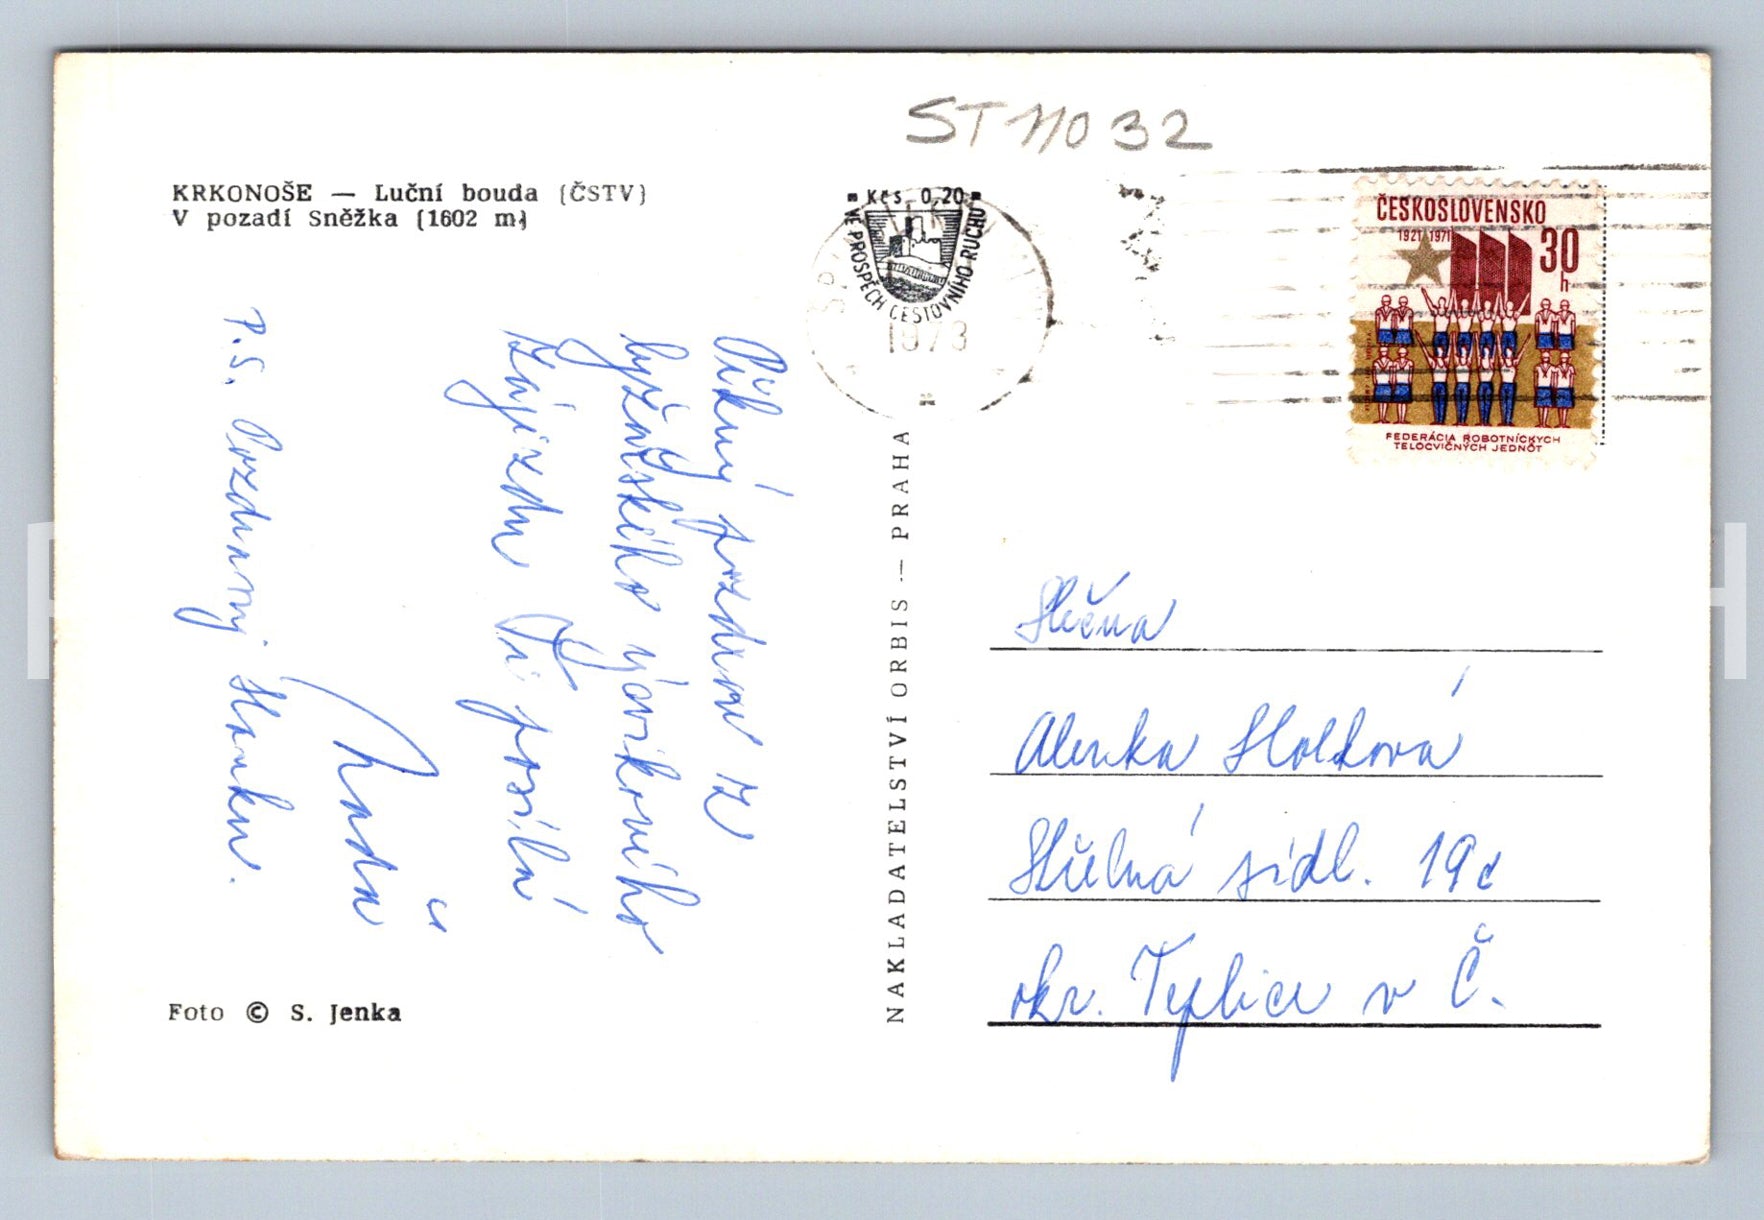 ST 11032
KRKONOŠE — Luční bouda (ČSTV)
V pozadí Sněžka (1602 m)
Kčs 0,20
VE PROSPĚCH CESTOVNÍHO RUCHU
1973
ČESKOSLOVENSKO
1921 1971
30
h
FEDERÁCIA ROBOTNÍCKYCH
TELOCVIČNÝCH JEDNÔT
Pěkný pozdrav z
lyžařského výcvikového
zájezdu Ti posílá
Naďa
P.S. Pozdravuj Hanku.
NAKLADATELSTVÍ ORBIS — PRAHA
Slečna
Alenka
Střelná sídl. 19c
okr. Teplice v Č.
Foto © S. Jenka